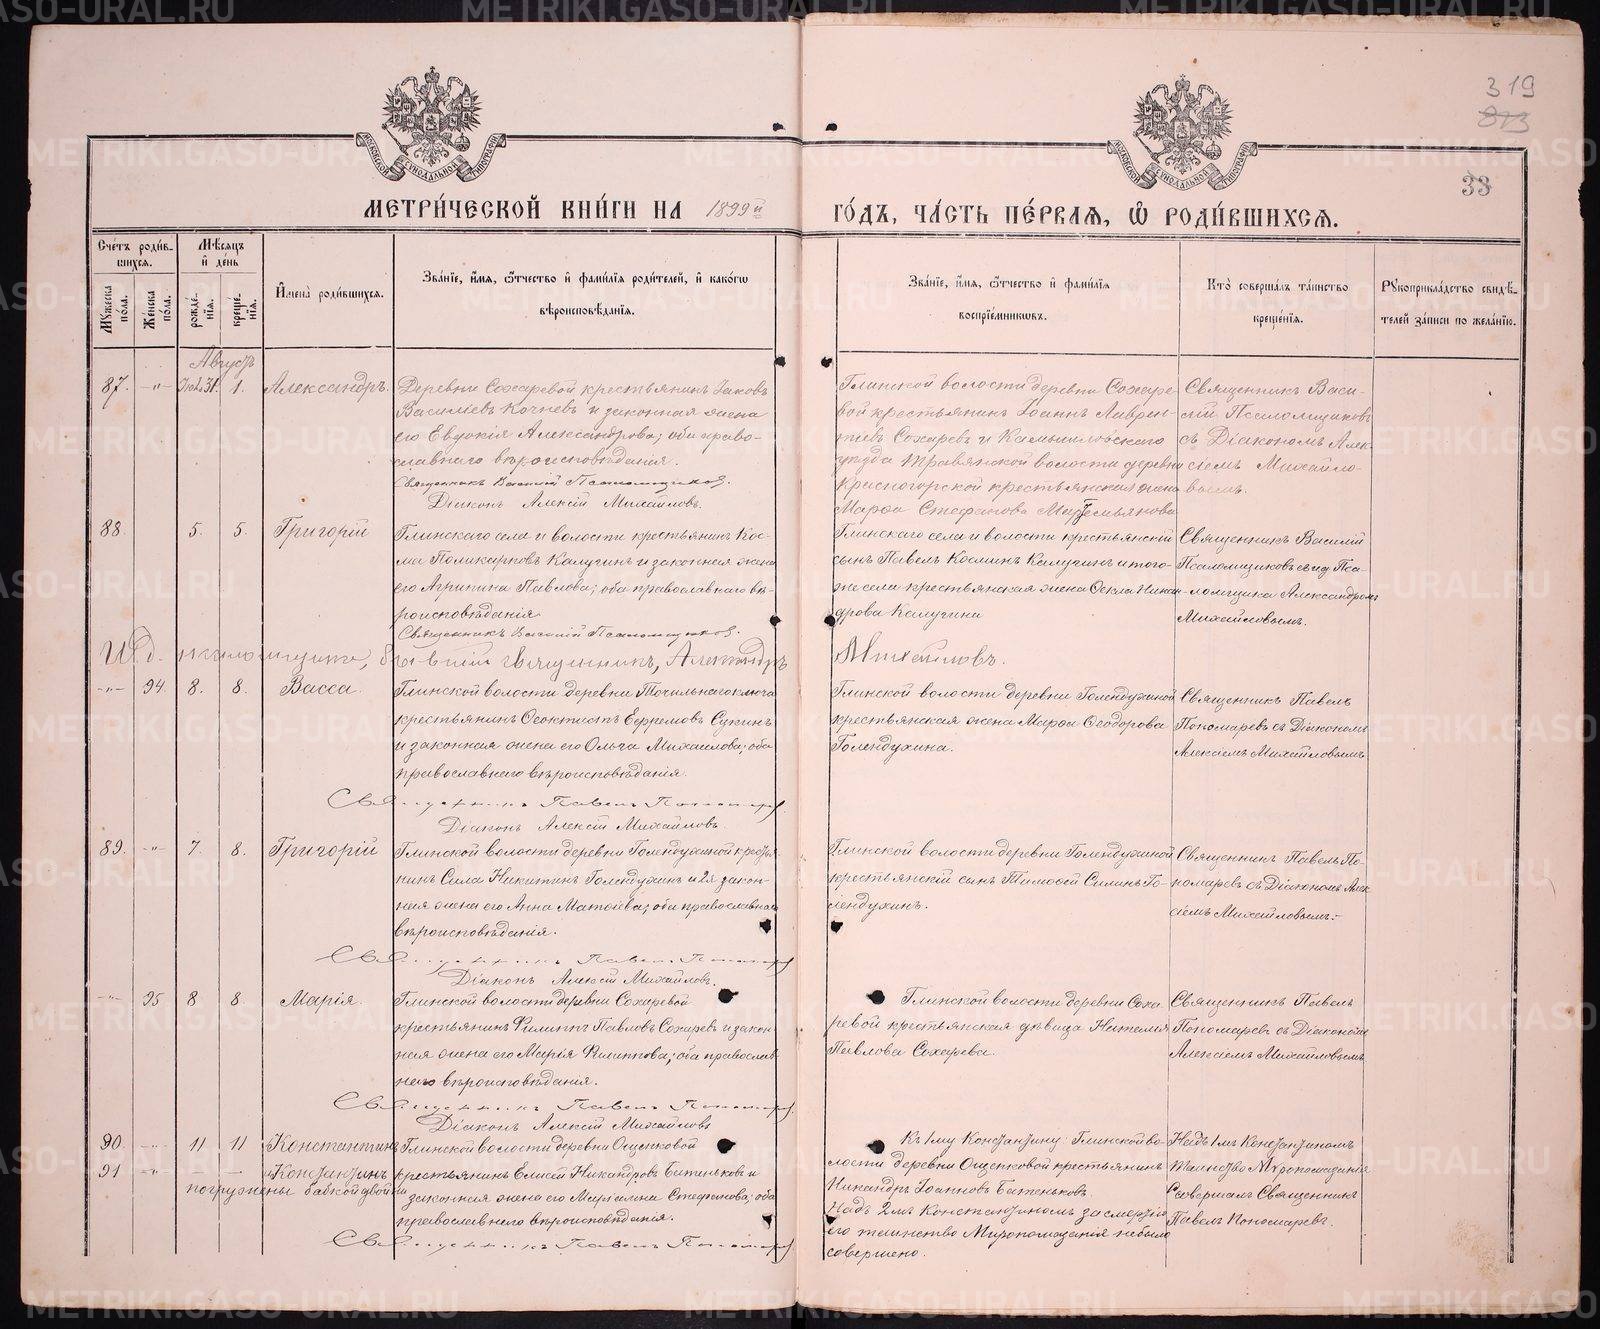 319
823
33
МОСКОВСКОЙ СѴНОДАЛЬНОЙ ТИПОГРАФІИ
МОСКОВСКОЙ СѴНОДАЛЬНОЙ ТИПОГРАФІИ
МЕТРИЧЕСКОЙ КНИГИ НА 1899й ГОДЪ, ЧАСТЬ ПЕРВАЯ, Ѡ РОДИВШИХСЯ.
Счетъ родив-
шихся.
Мужеска пола.
Женска пола.
Мѣсяцъ и день
рожде-нія.
креще-нія.
Имена родившихся.
Званіе, имя, ѿчество и фамилія родителей, и какогѡ
вѣроисповѣданія.
Званіе, имя, ѿчество и фамилія
воспріемниковъ.
Кто совершалъ таинство
крещенія.
Рукоприкладство свидѣ-
телей записи по желанію.
Августъ
87. -„- Іюль 31. 1. Александръ.
Деревни Сохаревой крестьянинъ Іаковъ
Василіевъ Кочневъ и законная жена
его Евдокія Александрова; оба право-
славнаго вѣроисповѣданія.
Священникъ Василій Псаломщиковъ.
Діаконъ Алексій Михайловъ.
Глинской волости деревни Сохаре-
вой крестьянинъ Іоаннъ Лаврен-
тіевъ Сохаревъ и Камышловскаго
уѣзда Травянской волости деревни
Красногорской крестьянская жена
Марѳа Стефанова Мартемьянова
Священникъ Васи-
лій Псаломщиковъ
съ Діакономъ Алек-
сіемъ Михайло-
вымъ.
88. 5. 5. Григорій
Глинскаго села и волости крестьянинъ Кос-
ма Поликарповъ Калугинъ и законная жена
его Агрипина Павлова; оба православнаго вѣ-
роисповѣданія.
Священникъ Василій Псаломщиковъ.
И. д. псаломщика, бывшій священникъ, Александръ Михайловъ.
Глинскаго села и волости крестьянскій
сынъ Павелъ Косминъ Калугинъ и того-
же села крестьянская жена Ѳекла Никан-
дрова Калугина
Священникъ Василій
Псаломщиковъ съ и д Пса-
ломщика Александромъ
Михайловымъ.
-„- 94. 8. 8. Васса.
Глинской волости деревни Точильнагоключа
крестьянинъ Ѳеоктистъ Ефремовъ Сукинъ
и законная жена его Ольга Михаилова; оба
православнаго вѣроисповѣданія.
Священникъ Павелъ Пономаревъ
Діаконъ Алексій Михайловъ.
Глинской волости деревни Голендухиной
крестьянская жена Марѳа Ѳеодорова
Голендухина.
Священникъ Павелъ
Пономаревъ съ Діакономъ
Алексіемъ Михайловымъ
89. -„- 7. 8. Григорій
Глинской волости деревни Голендухиной крестья-
нинъ Сила Никитинъ Голендухинъ и 2я закон-
ная жена его Анна Матѳіева; оба православнаго
вѣроисповѣданія.
Священникъ Павелъ Пономаревъ
Діаконъ Алексій Михайловъ.
Глинской волости деревни Голендухиной
крестьянскій сынъ Тимоѳей Силинъ Го-
лендухинъ.
Священникъ Павелъ По-
номаревъ съ Діакономъ Алек-
сіемъ Михайловымъ.-
-„- 95 8 8. Марія.
Глинской волости деревни Сохаревой
крестьянинъ Филиппъ Павловъ Сохаревъ и закон-
ная жена его Марія Филиппова; оба православ-
наго вѣроисповѣданія.
Священникъ Павелъ Пономаревъ
Діаконъ Алексій Михайловъ
Глинской волости деревни Соха
ревой крестьянская дѣвица Наталія
Павлова Сохарева.
Священникъ Павелъ
Пономаревъ съ Діакономъ
Алексіемъ Михайловымъ
90. -„- 11 11 Константинъ
91 „ — — и Константинъ
погружены бабкой двойни
Глинской волости деревни Ощепковой
крестьянинъ Елисей Никандровъ Батеньковъ и
законная жена его Стефанова; оба
православнаго вѣроисповѣданія.
Священникъ Павелъ Пономаревъ
Къ 1му Константину Глинской во-
лости деревни Ощепковой крестьянинъ
Никандръ Іоанновъ Батеньковъ.
Надъ 2мъ Константиномъ за смертію
его таинство Мѵропомазанія не было
совершено.
Надъ 1мъ Константиномъ
Таинство Мѵропомазанія
совершалъ Священникъ
Павелъ Пономаревъ.
METRIKI.GASO-URAL.RU